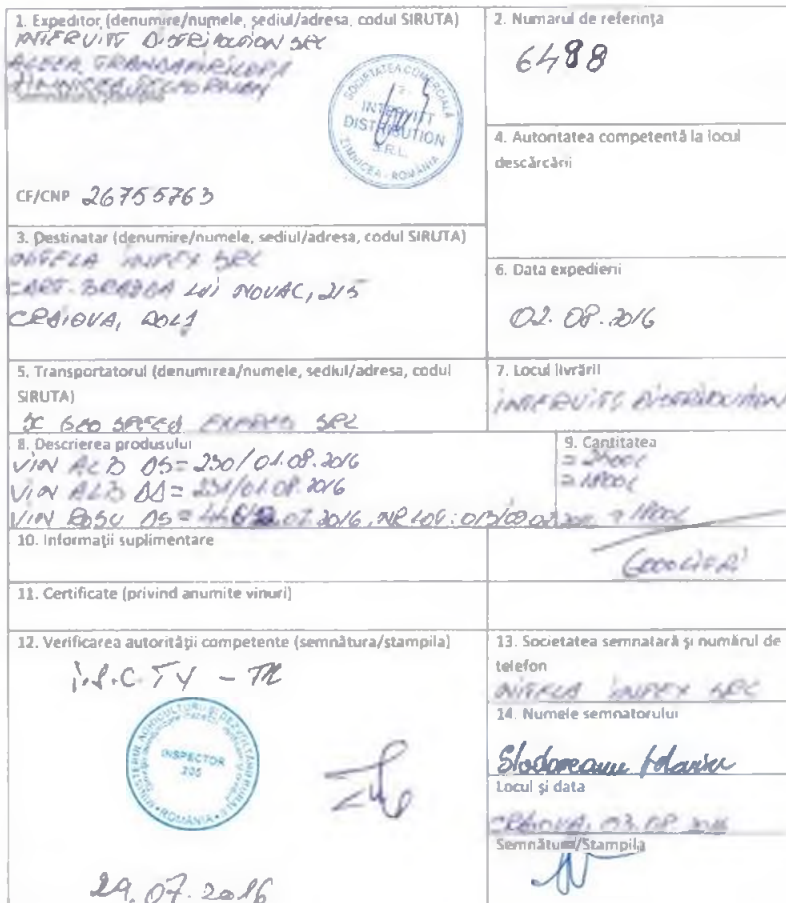 1. Expeditor (denumire/numele, sediul/adresa, codul SIRUTA)
INTERVITT DISTRIBUTION SRL
ALEEA TRANDAFIRILOR
ZIMNICEA
SOCIETATEA COMERCIALĂ
INTERVITT
DISTRIBUTION
S.R.L.
ZIMNICEA - ROMÂNIA
CF/CNP 26755763
2. Numarul de referința
6488
4. Autoritatea competentă la locul
descărcării
3. Destinatar (denumire/numele, sediul/adresa, codul SIRUTA)
SRL
CART. BRAZDA LUI NOVAC, 215
CRAIOVA, DOLJ
6. Data expedierii
02.08.2016
5. Transportatorul (denumirea/numele, sediul/adresa, codul
SIRUTA)
SC GEO SPEED EXPRESS SRL
7. Locul livrării
INTERVITT DISTRIBUTION
8. Descrierea produsului
VIN ALB DS = 230/01.08.2016
VIN ALB DD = 231/01.08.2016
VIN ROSU DS = 07.2016, NR LOT: 013/
9. Cantitatea
= 1800 L
= 1800 L
10. Informații suplimentare
6000 LITRI
11. Certificate (privind anumite vinuri)
12. Verificarea autorității competente (semnătura/stampila)
I.S.C.T.V - TR
INSPECTOR
205
ROMÂNIA
29.07.2016
13. Societatea semnatară și numărul de
telefon
SRL
14. Numele semnatorului
Locul și data
CRAIOVA, 03.08.2016
Semnătura/Stampila